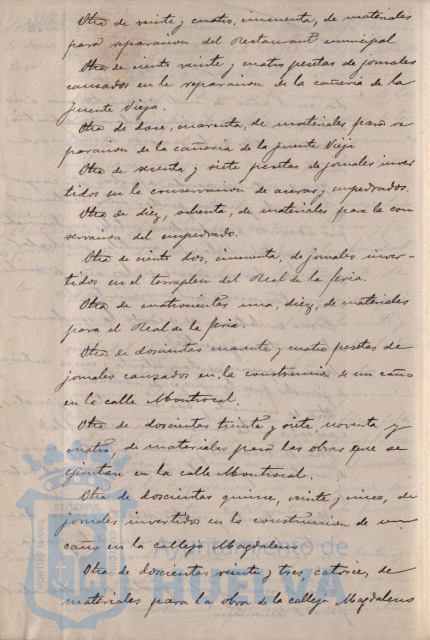 Otra de veinte y cuatro, cincuenta, de materiales
para reparacion del Restaurant municipal
Otra de ciento veinte y cuatro pesetas de jornales
causados en la reparacion de la cañeria de la
Fuente Vieja.
Otra de doce, cuarenta, de materiales para re
paracion de la cañeria de la fuente Vieja
Otra de sesenta y siete pesetas de jornales inver
tidos en la conservacion de aceras y empedrados.
Otra de diez, ochenta, de materiales para la con
servacion del empedrado.
Otra de ciento dos, cincuenta, de jornales inver-
tidos en el terraplen del Real de la feria.
Otra de cuatrocientas una, diez, de materiales
para el Real de la feria.
Otra de doscientas cuarenta y cuatro pesetas de
jornales causados en la construccion de un caño
en la calle Montrocal.
Otra de doscientas treinta y siete, noventa y
cuatro, de materiales para las obras que se
ejecutan en la calle Montrocal.
Otra de doscientas quince, veinte y cinco, de
jornales invertidos en la construccion de un
caño en la calleja Magdalena
Otra de doscientas veinte y tres, catorce, de
materiales para la obra de la calleja Magdalena
Ayuntamiento de
HUELVA
PORTUS MARIS
ET TERRAE